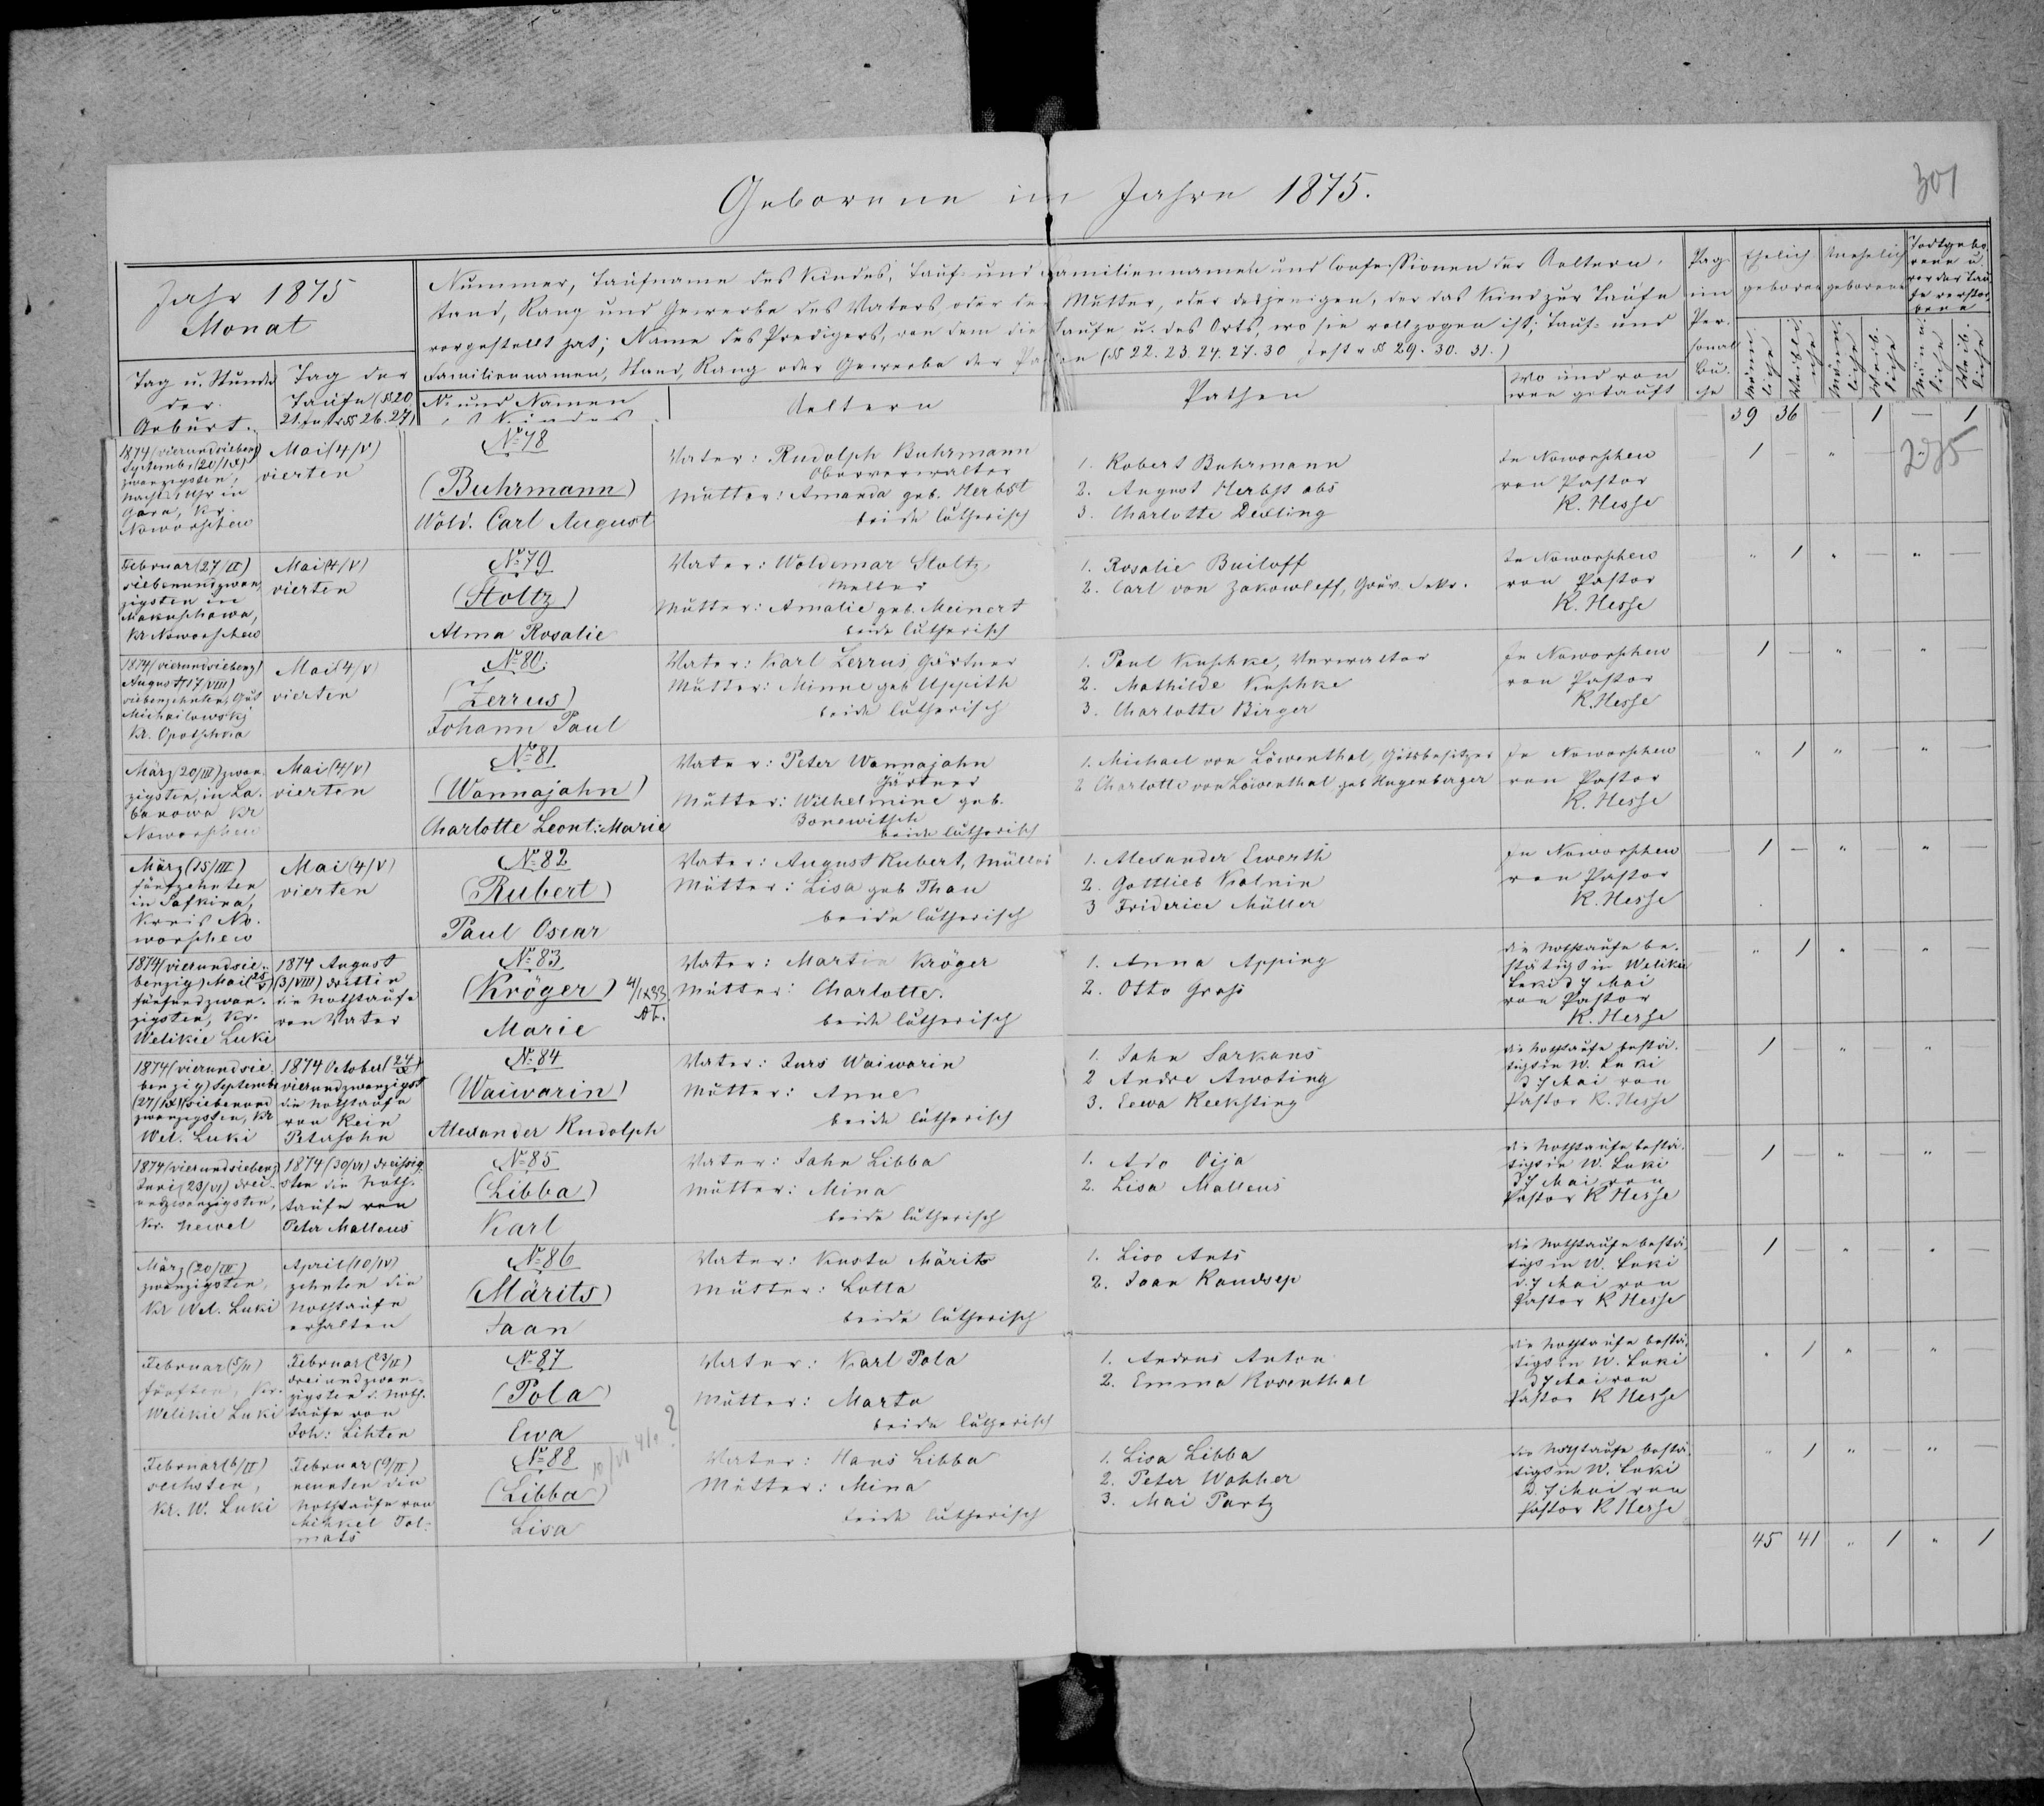 Geborene im Jahre 1875.
301
Jahr 1875
Monat
Tag u. Stunde der Geburt.
Tag der Taufe (§§ 20. 21. 26. 27)
Nummer, Taufname des Kindes, Tauf- und Familiennamen und Confessionen der Aeltern,
Stand, Rang und Gewerbe des Vaters oder der Mutter, oder desjenigen, der das Kind zur Taufe
vorgestellt hat; Name des Predigers, von dem die Taufe u. des Orts, wo sie vollzogen ist; Tauf- und
Familiennamen, Stand, Rang oder Gewerbe der Pathen (§§ 22. 23. 24. 27. 30 §§ 29. 30. 31.)
No und Namen des Kindes.
Aeltern
Pathen
Wo und von wem getauft
Pag. im Personal Buche
Ehelich geboren
Unehelich geborene
Todtgeborene u. vor der Taufe verstorbene
Männliche
Weibliche
Männliche
Weibliche
Männliche
Weibliche
39 36 — 1 — 1
1874 (vierundsiebenz)
Septembr (20/IX)
zwanzigsten,
Nachts 1 Uhr in
Gora, Kr.
Noworschew
Mai (4/V)
vierten
No 78
(Buhrmann)
Wold. Carl August
Vater: Rudolph Buhrmann
Oberverwalter
Mutter: Amanda geb. Herbst
beide lutherisch
1. Robert Buhrmann
2. August Herbst abs
3. Charlotte Dexling
In Noworschew
von Pastor
K. Hesse
1
275
Februar (27/II)
siebenundzwan
zigsten in
Makuschowa,
Kr Noworschew
Mai (4/V)
vierten
No 79
(Stoltz)
Alma Rosalie
Vater: Woldemar Stoltz
Mutter: Amalie geb. Meinert
beide lutherisch
1. Rosalie Builoff
2. Carl von Zakowleff, Gouv. Sekr.
In Noworschew
von Pastor
K. Hesse
1
1874 (vierundsiebenz)
August (17/VIII)
siebenzehnten, Gut
Michailowski
Kr. Opotschka
Mai (4/V)
vierten
No 80.
(Zerrus)
Johann Paul
Vater: Karl Zerrus Gärtner
Mutter: Minne geb Uppith
beide lutherisch
1. Paul Kuschke, Verwalter
2. Mathilde Kuschke
3. Charlotte Birger
In Noworschew
von Pastor
K. Hesse
1
März (20/III) zwan
zigsten, in La
banowa Kr
Noworschew
Mai (4/V)
vierten
No 81
(Wannajahn)
Charlotte Leont: Marie
Vater: Peter Wannajahn
Gärtner
Mutter: Wilhelmine geb.
Bonewitsch
beide lutherisch
1. Michael von Löwenthal, Gutsbesitzer
2 Charlotte von Löwenthal, geb Hugenberger
In Noworschew
von Pastor
K. Hesse
1
März (15/III)
fünfzehnten
in Safkina,
Kreis No
worschew
Mai (4/V)
vierten
No 82
(Rubert)
Paul Oscar
Vater: August Rubert, Müller
Mutter: Lisa geb Thau
beide lutherisch
1. Alexander Ewerth
2. Gottlieb Kalnin
3 Friderice Müller
In Noworschew
von Pastor
K. Hesse
1
1874 (vierundsie
benzig) Mai (25/V)
fünfundzwan
zigsten, Kr.
Welikie Luki
1874 August
(3/VIII) dritten
die Nothtaufe
von Vater
No 83
(Kröger)
Marie
Vater: Martin Kröger
Mutter: Charlotte.
beide lutherisch
1. Anna Apping
2. Otto Grass
die Nothtaufe be
stätigt in Welikie
Luki d 7 Mai
von Pastor
K. Hesse
1
1874 (vierundsie
benzig) September
(27/IX) siebenund
zwanzigsten, Kr
Wel. Luki
1874 October (24/X)
vierundzwanzigst
die Nothtaufe
von Rein
Petersohn
No 84
(Waiwarin)
Alexander Rudolph
Vater: Jurs Waiwarin
Mutter: Anne
beide lutherisch
1. Jahn Sarkans
2 Andre Awoting
3. Eewa Reeksting
die Nothtaufe bestä
tigt in W. Luki
d 7 Mai von
Pastor K. Hesse
1
1874 (vierundsiebenz)
Juni (23/VI) drei
undzwanzigsten,
Kr. Newel
1874 (30/VI) dreissig
sten die Noth
taufe von
Peter Malleus
No 85
(Libba)
Karl
Vater: Jahn Libba
Mutter: Mina
beide lutherisch
1. Ado Oija
2. Lisa Malleus
die Nothtaufe bestä
tigt in W. Luki
d 7 Mai von
Pastor K Hesse
1
März (20/III)
zwanzigsten,
Kr Wel. Luki
April (10/IV)
zehnten die
Nothtaufe
erhalten
No 86
(Märits)
Jaan
Vater: Kusta Märits
Mutter: Lotta
beide lutherisch
1. Liso Ants
2. Jaan Raudsep
die Nothtaufe bestä
tigt in W. Luki
d. 7 Mai von
Pastor K Hesse
1
Februar (5/II)
fünften, Kr.
Welikie Luki
Februar (23/II)
dreiundzwan
zigsten d. Noth
taufe von
Joh: Lihten
No 87
(Pola)
Ewa
Vater: Karl Pola
Mutter: Marta
beide lutherisch
1. Andrus Anton
2. Emma Rosenthal
die Nothtaufe bestä
tigt in W. Luki
d 7 Mai von
Pastor K Hesse
1
Februar (6/II)
sechsten,
Kr. W. Luki
Februar (9/II)
neunten die
Nothtaufe von
Mihkel Tol
mats
No 88
(Libba)
Lisa
Vater: Hans Libba
Mutter: Mina
beide lutherisch
1. Lisa Libba
2. Peter Wahher
3. Mai Partz
die Nothtaufe bestä
tigt in W. Luki
d. 7 Mai von
Pastor K Hesse
1
45 41 " 1 " 1